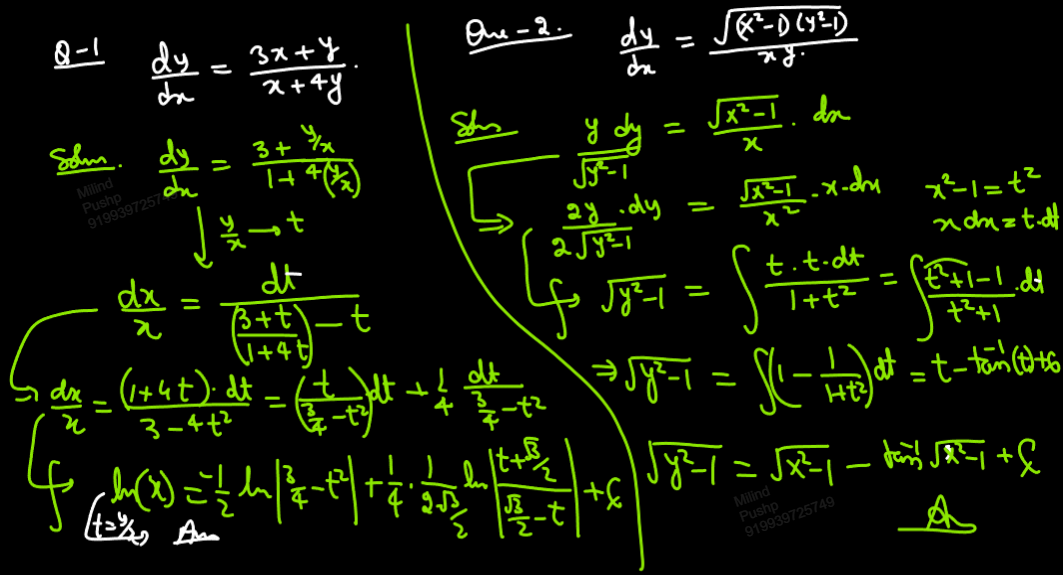 Q-1 dy/dx = (3x+y)/(x+4y).
Soln. dy/dx = (3 + y/x)/(1 + 4(y/x))
y/x → t
dx/x = dt/(((3+t)/(1+4t)) - t)
dx/x = (1+4t)·dt/(3-4t²) = (t/(3/4 - t²))dt + 1/4 dt/(3/4 - t²)
∫ ln(x) = -1/2 ln|3/4 - t²| + 1/4 · 1/(2√3/2) ln|(t+√3/2)/(√3/2 - t)| + C
t=y/x Ans
Milind
Pushp
919939725749
Que-2. dy/dx = √((x²-1)(y²-1))/xy.
Soln y dy/√(y²-1) = √(x²-1)/x · dx
⇒ 2y·dy/(2√(y²-1)) = √(x²-1)/x² · x·dx
x²-1 = t²
x dx = t·dt
∫ √(y²-1) = ∫ t·t·dt/(1+t²) = ∫ (t²+1-1)/(t²+1) ·dt
⇒ √(y²-1) = ∫(1 - 1/(1+t²))dt = t - tan⁻¹(t)+C
√(y²-1) = √(x²-1) - tan⁻¹√(x²-1) + C
A
Milind
Pushp
919939725749